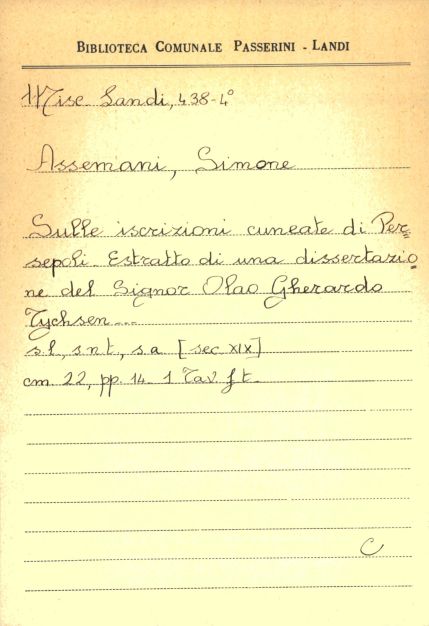 BIBLIOTECA COMUNALE PASSERINI - LANDI
Misc. Landi, 438-4°
Assemani, Simone
Sulle iscrizioni cuneate di Per=
sepoli. Estratto di una dissertazio=
ne del Signor Olao Gherardo
Tychsen...
s.l., s.n.t., s.a. [sec. XIX]
cm. 22, pp. 14. 1 Tav. f.t.
C